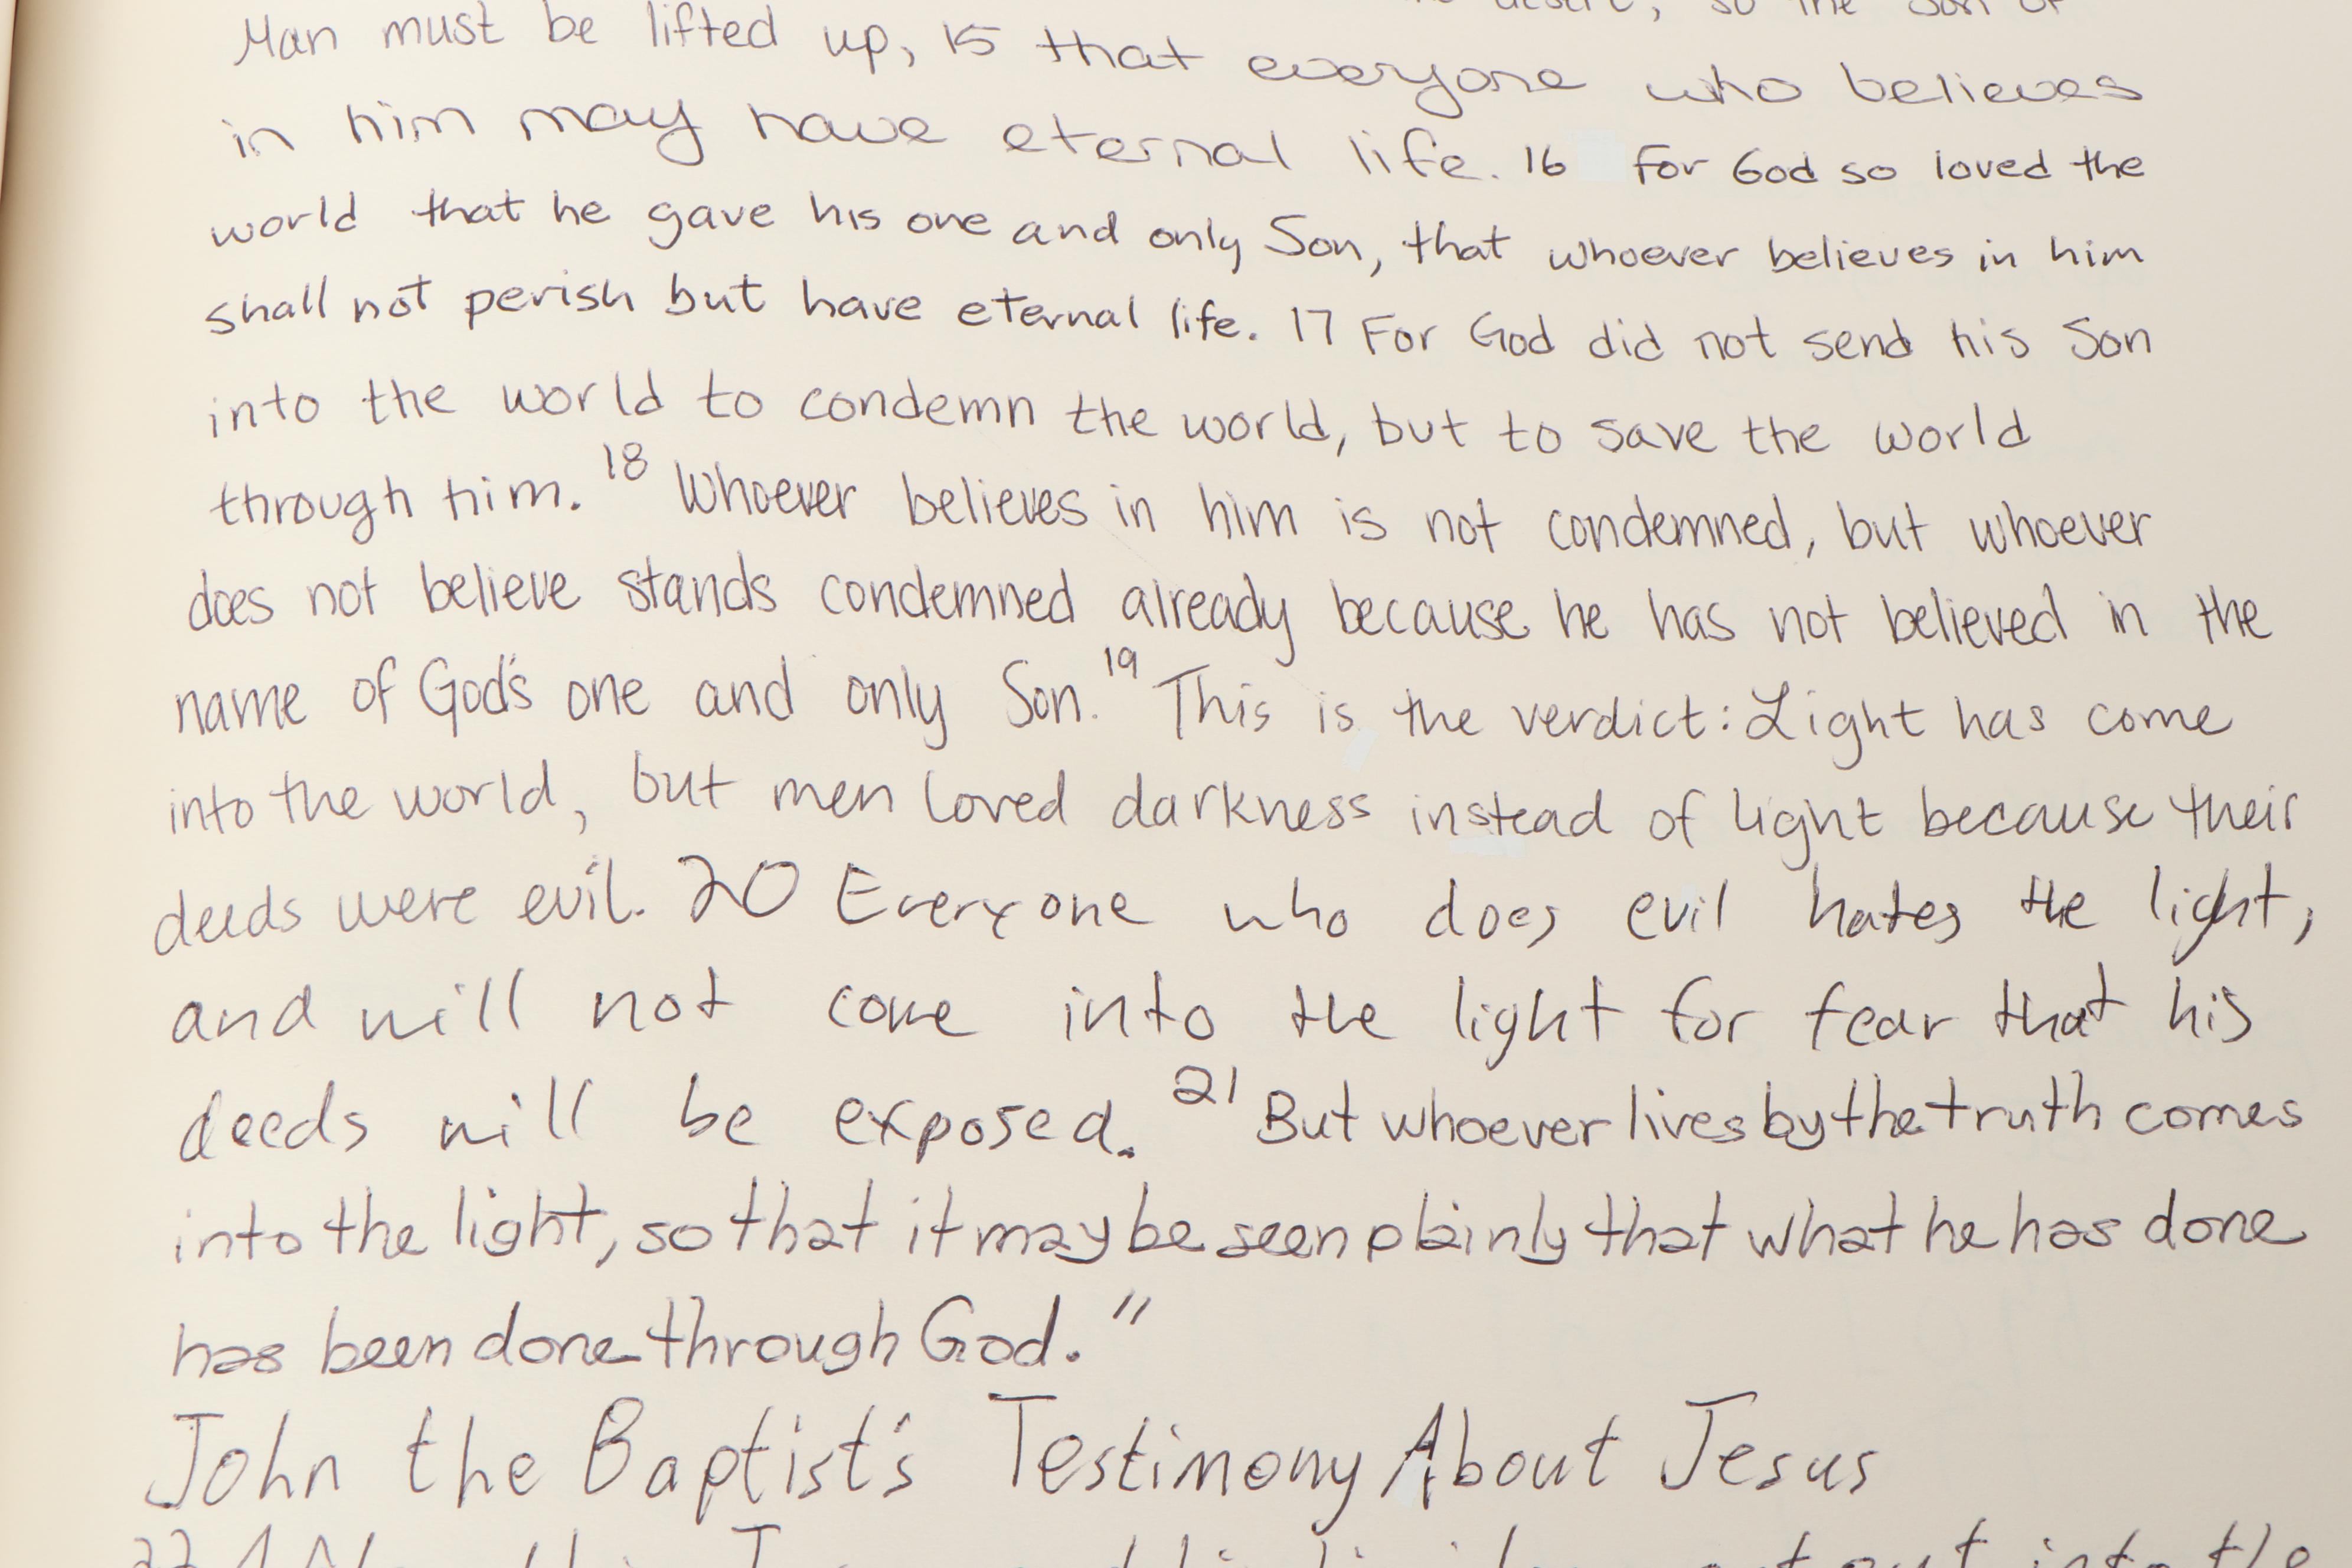 desert, so the Son of
Man must be lifted up, 15 that everyone who believes
in him may have eternal life. 16 For God so loved the
world that he gave his one and only Son, that whoever believes in him
shall not perish but have eternal life. 17 For God did not send his Son
into the world to condemn the world, but to save the world
through him. 18 Whoever believes in him is not condemned, but whoever
does not believe stands condemned already because he has not believed in the
name of God's one and only Son. 19 This is the verdict: Light has come
into the world, but men loved darkness instead of light because their
deeds were evil. 20 Everyone who does evil hates the light,
and will not come into the light for fear that his
deeds will be exposed. 21 But whoever lives by the truth comes
into the light, so that it may be seen plainly that what he has done
has been done through God."
John the Baptist's Testimony About Jesus
22 out into the